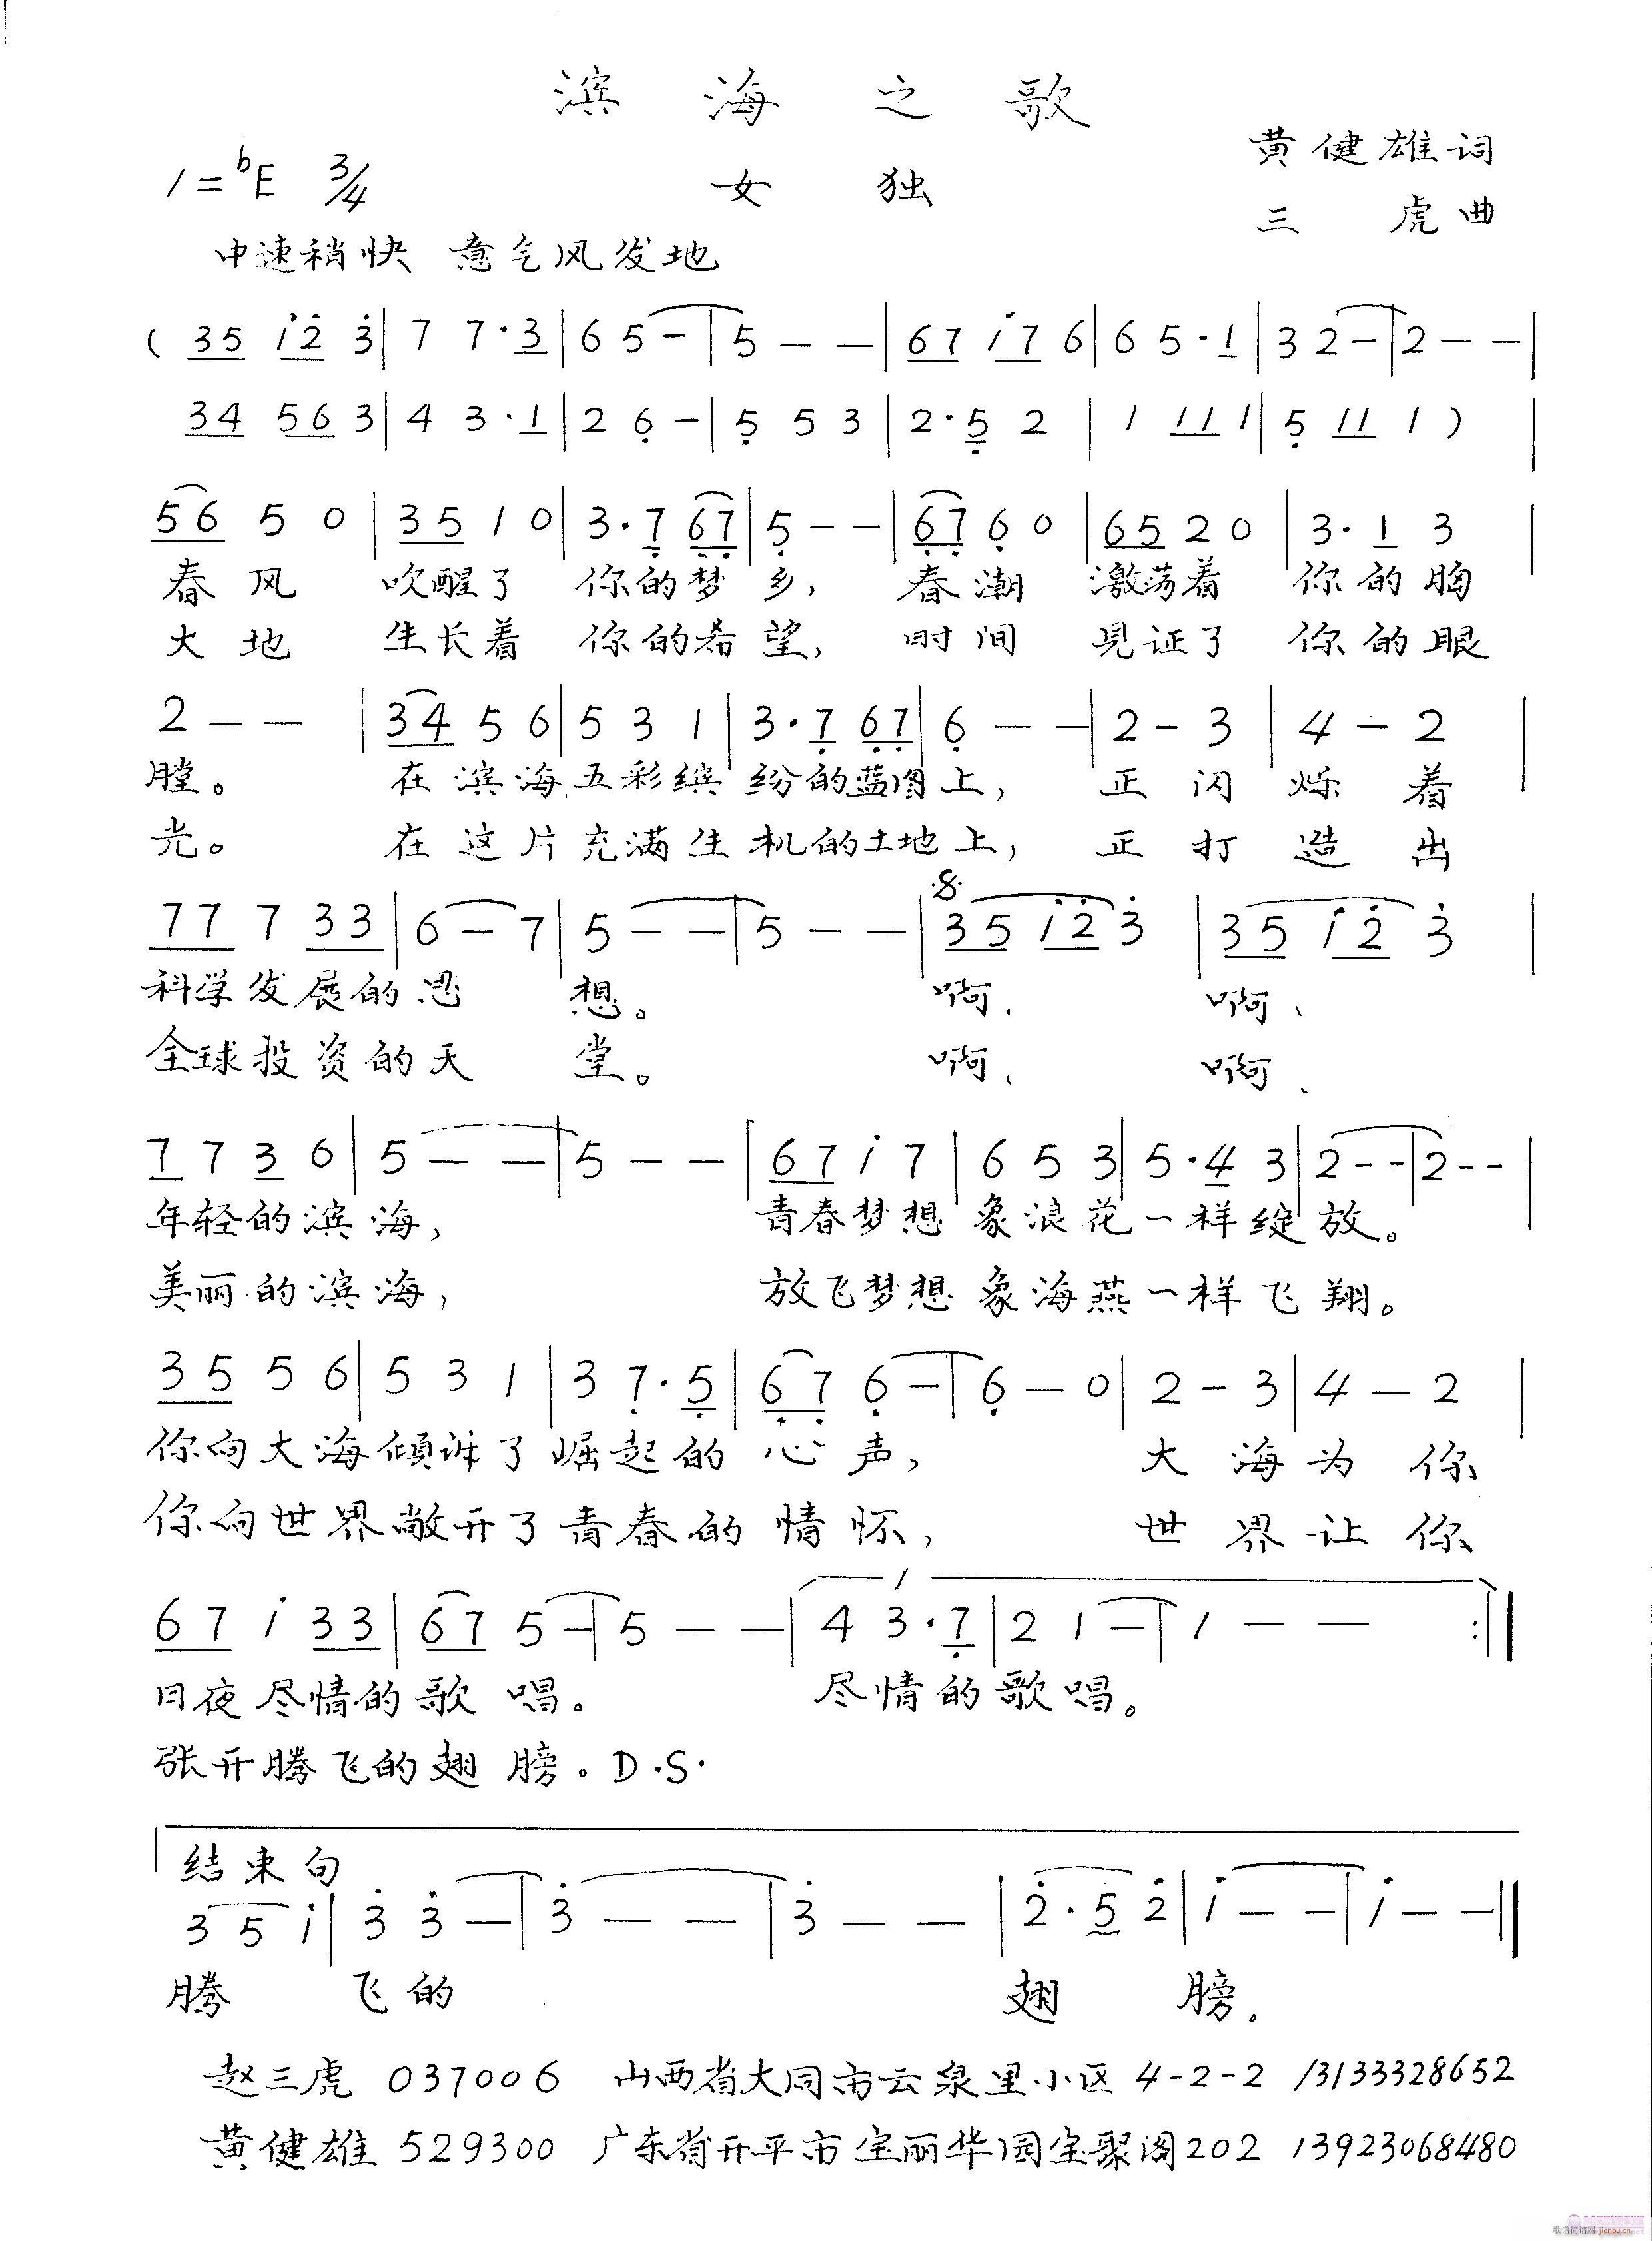 滨海之歌
1=bE 3/4 女独 黄健雄词
三虎曲
中速稍快 意气风发地
( 35 1̇2̇ 3̇ | 7 7·3 | 6 5 - | 5 - - | 67 1̇7 6 | 6 5·1 | 3 2 - | 2 - - |
34 56 3 | 4 3·1 | 2 6̣ - | 5̣ 5 3 | 2·5̣ 2 | 1 11 1 | 5̣ 11 1 ) |
56 5 0 | 35 1 0 | 3·7̣ 6̣7̣ | 5̣ - - | 6̣7̣ 6̣ 0 | 65 2 0 | 3·1 3 |
春风 吹醒了 你的梦乡, 春潮 激荡着 你的胸
大地 生长着 你的希望, 时间 见证了 你的眼
2 - - | 34 5 6 | 5 3 1 | 3·7̣ 6̣7̣ | 6̣ - - | 2 - 3 | 4 - 2 |
膛。 在滨海五彩缤纷的蓝图上, 正闪烁着
光。 在这片充满生机的土地上, 正打造出
77 7 33 | 6 - 7 | 5 - - | 5 - - | 35 1̇2̇ 3̇ | 35 1̇2̇ 3̇ |
科学发展的思想。 啊、 啊、
全球投资的天堂。 啊、 啊、
7 7 3 6 | 5 - - | 5 - - | 67 1̇ 7 | 6 5 3 | 5·4 3 | 2 - - | 2 - - |
年轻的滨海, 青春梦想象浪花一样绽放。
美丽的滨海, 放飞梦想象海燕一样飞翔。
35 5 6 | 5 3 1 | 3 7̣·5̣ | 6̣7̣ 6̣ - | 6̣ - 0 | 2 - 3 | 4 - 2 |
你向大海倾诉了崛起的心声, 大海为你
你向世界敞开了青春的情怀, 世界让你
1
67 1̇ 33 | 67 5 - | 5 - - | 4 3·7̣ | 2 1 - | 1 - - :||
日夜尽情的歌唱。 尽情的歌唱。
张开腾飞的翅膀。D.S.
结束句
3 5 1̇ | 3̇ 3̇ - | 3̇ - - | 3̇ - - | 2̇·5 2̇ | 1̇ - - | 1̇ - - ||
腾飞的翅膀。
赵三虎 037006 山西省大同市云泉里小区 4-2-2 13133328652
黄健雄 529300 广东省开平市宝丽华园宝聚阁202 13923068480
歌谱简谱网 jianpu.cn